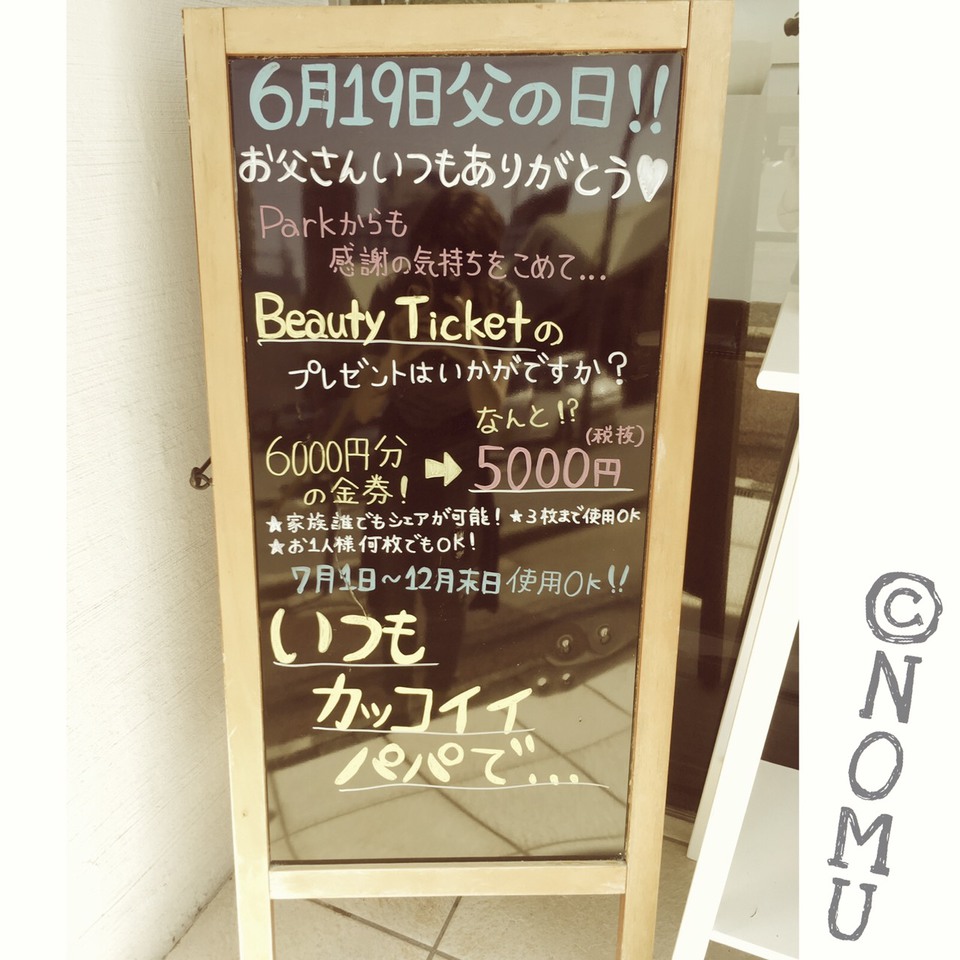 6月19日父の日!!
お父さんいつもありがとう♥
Parkからも
感謝の気持ちをこめて...
Beauty Ticketの
プレゼントはいかがですか?
なんと!?
6000円分
の金券!
➡
(税抜)
5000円
★家族誰でもシェアが可能! ★3枚まで使用OK
★お1人様何枚でもOK!
7月1日~12月末日使用OK!!
いつも
カッコイイ
パパで...
©NOMU